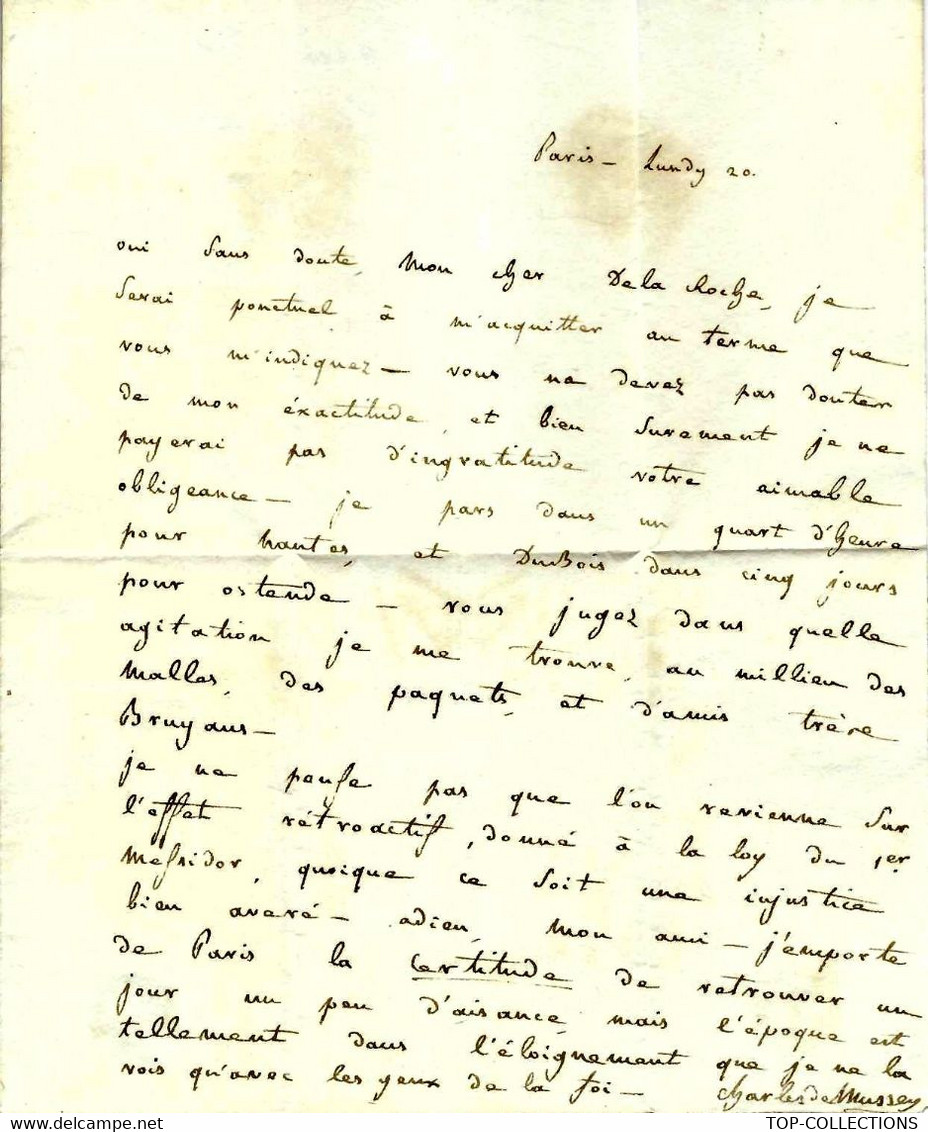 Paris – Lundy 20.
oui sans doute, mon cher Dela Roche, je
serai ponctuel à m'acquitter au terme que
vous m'indiquez – vous ne devez pas douter
de mon éxactitude, et bien surement je ne
payerai pas d'ingratitude votre aimable
obligeance – je pars dans un quart d'heure
pour nantes, et DuBois dans cinq jours
pour ostende – vous jugez dans quelle
agitation je me trouve, au millieu des
malles, des paquets, et d'amis trère
Bruyans –
je ne pense pas que l'on revienne sur
l'effet rétroactif, donné à la loy du 1er
messidor, quoique ce soit une injustice
bien averé – adieu, mon ami – j'emporte
de Paris la certitude de retrouver un
jour un peu d'aisance, mais l'époque est
tellement dans l'éloignement que je ne la
vois qu'avec les yeux de la foi – Charles de Mussey
TOP-COLLECTIONS